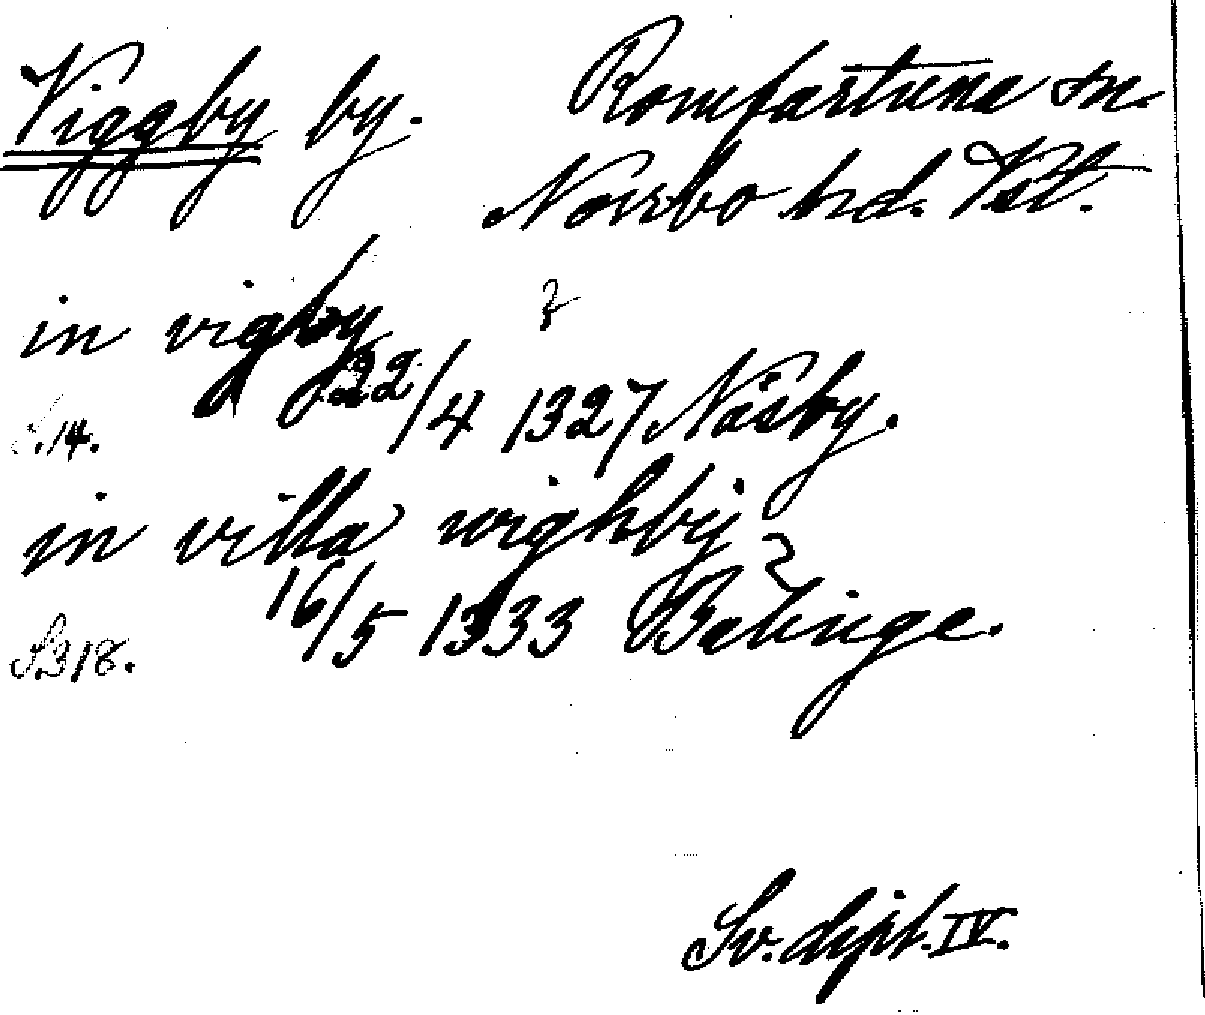 Viggby by. Romfartuna sn.
Norrbo hd. Vst.
in vigby
22/4 1327 Näsby.
S. 14.
in villa wighby
16/5 1333 Bälinge.
S 318.
Sv. dipl. IV.